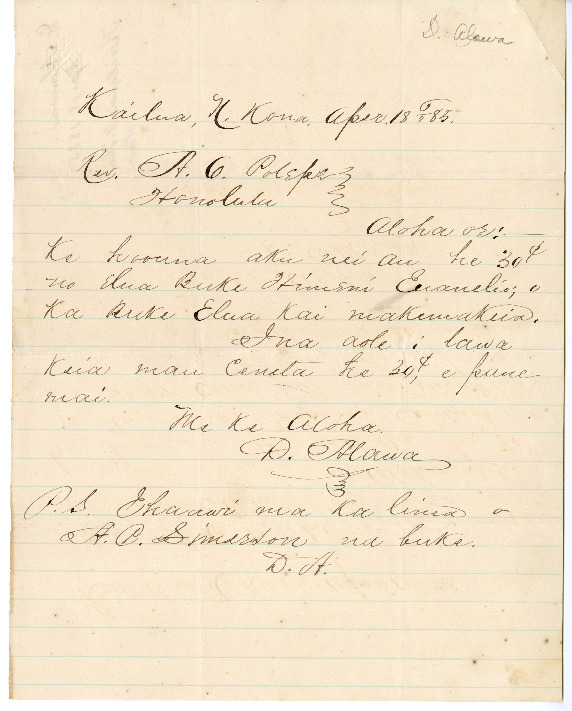 D. Alawa
Kailua, N. Kona, Aper. 18th /85.
Rev. A. O. Polepe
Honolulu
Aloha oe: —
Ke hoouna aku nei au he 30¢
no elua Buke Himeni Euanelio; o
ka Buke Elua kai makemakeia.
Ina aole i lawa
keia mau Ceneta he 30¢, e pane
mai.
Me Ke Aloha.
D. Alawa
P.S. Ehaawi ma ka lima o
A. C. Simerson na buke.
D. A.